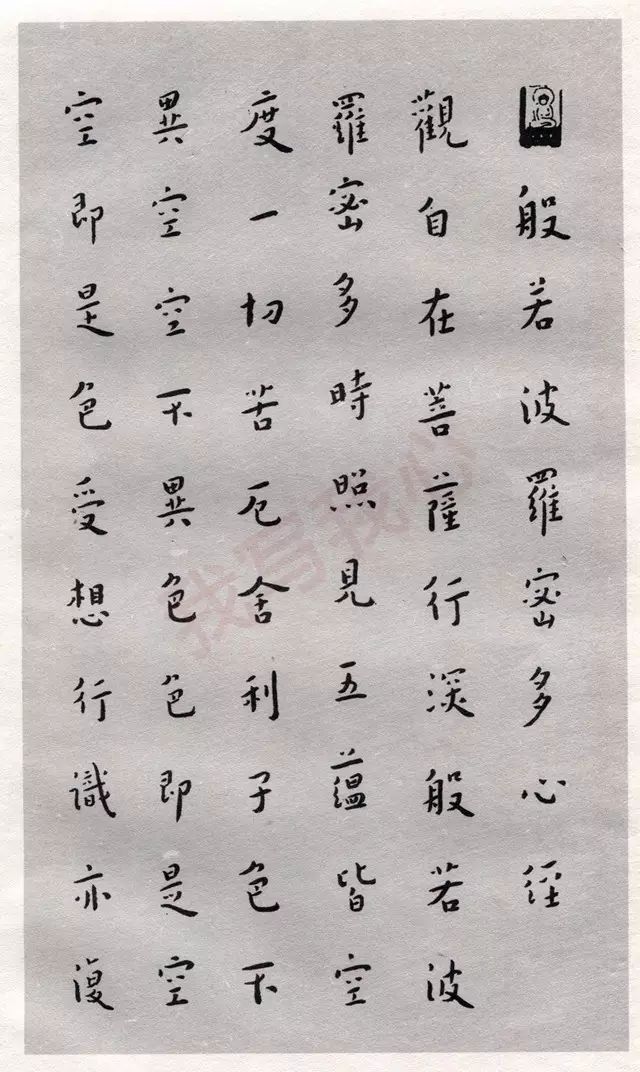 般若波羅密多心經
觀自在菩薩行深般若波
羅密多時照見五蘊皆空
度一切苦厄舍利子色不
異空空不異色色即是空
空即是色受想行識亦復
我写我心